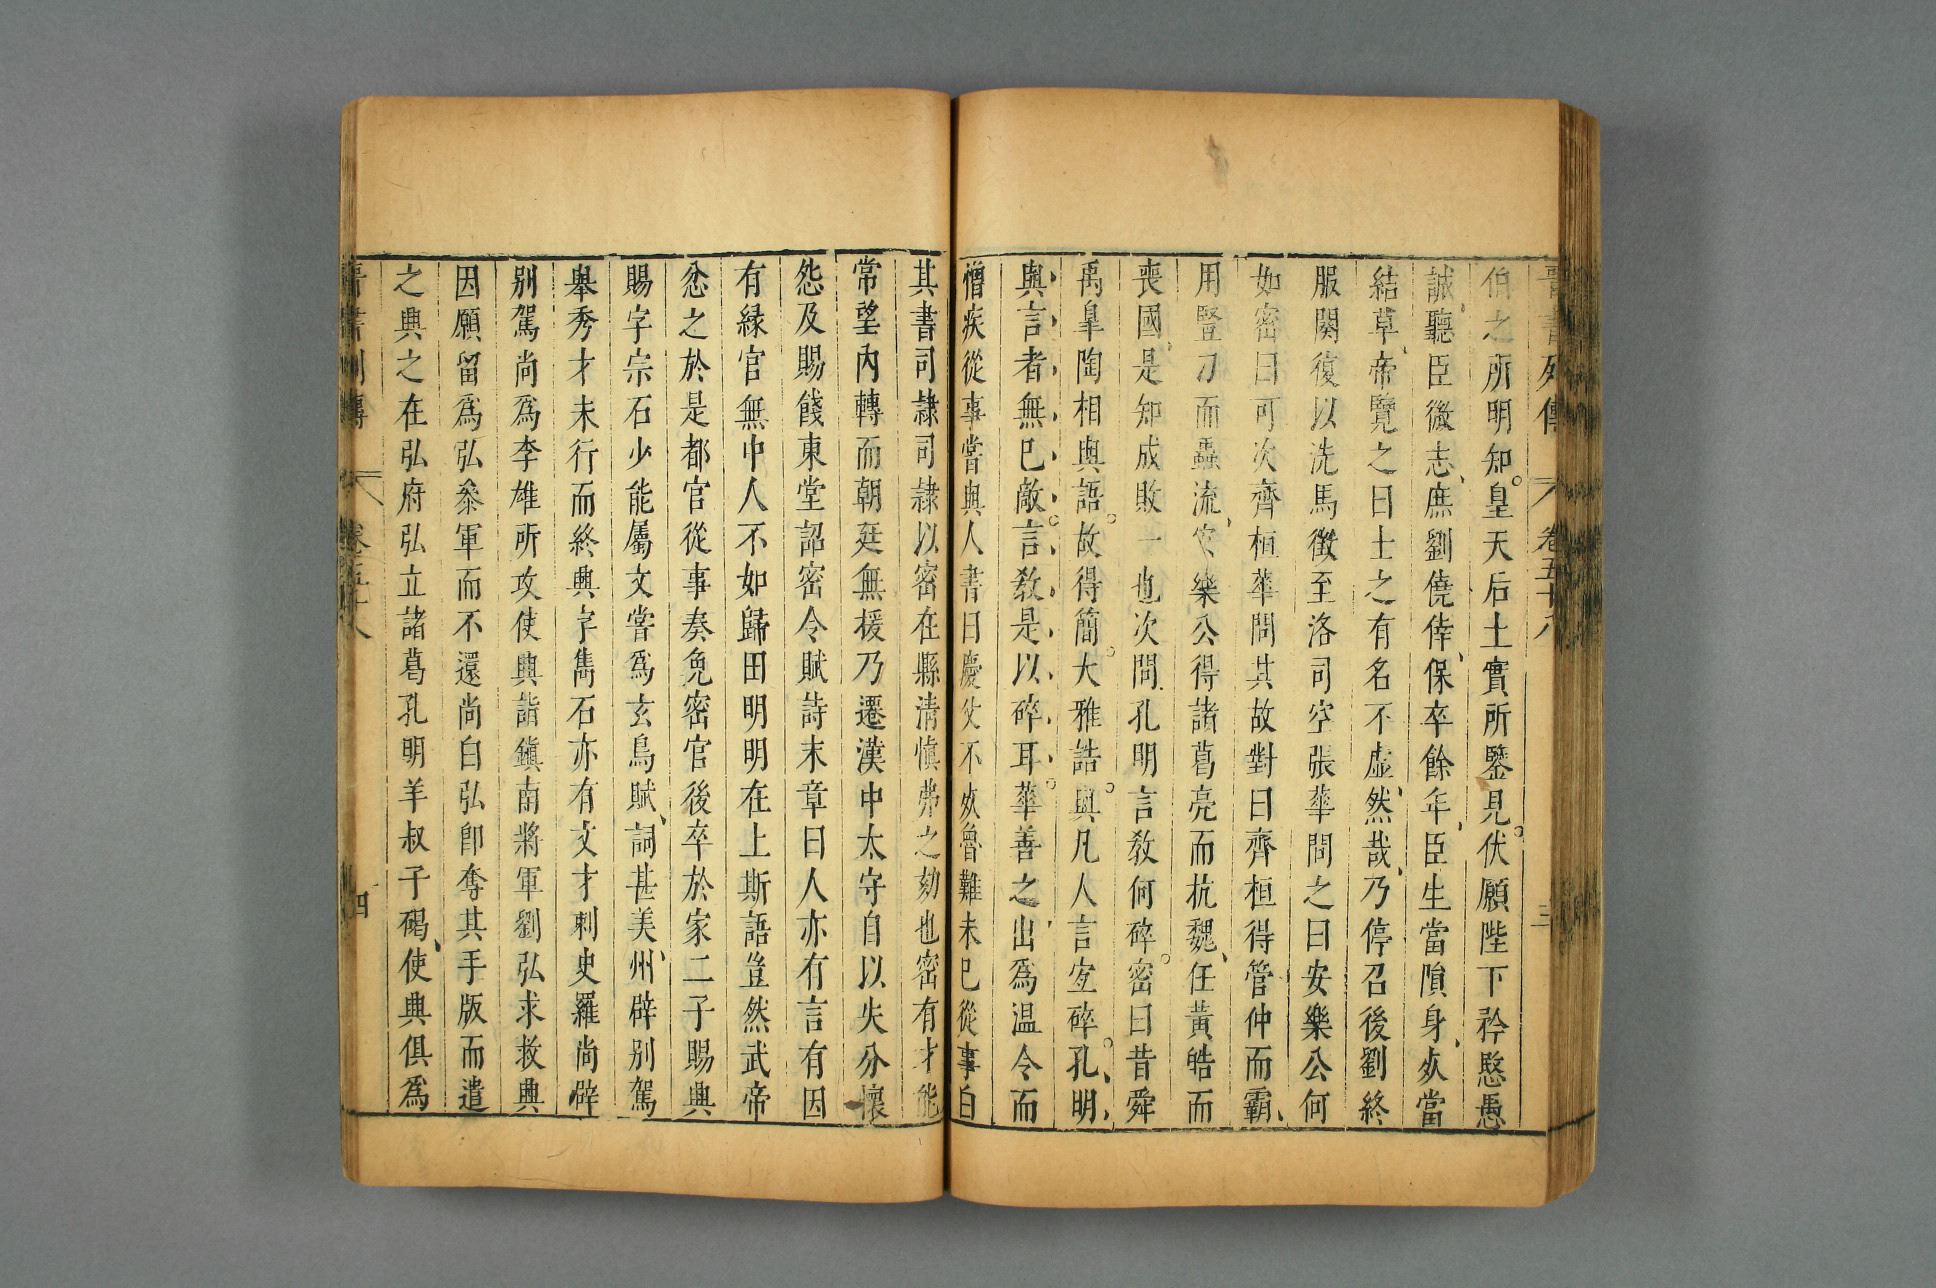 晉書列傳 卷五十八 三
伯之所明知皇天后土實所鑒見伏願陛下矜愍愚
誠聽臣微志庶劉僥倖保卒餘年臣生當隕身死當
結草帝覽之曰士之有名不虛然哉乃停召後劉終
服闋復以洗馬徵至洛司空張華問之曰安樂公何
如密曰可次齊桓華問其故對曰齊桓得管仲而霸
用豎刀而蟲流安樂公得諸葛亮而抗魏任黃皓而
喪國是知成敗一也次問孔明言教何碎密曰昔舜
禹皐陶相與語故得簡大雅誥與凡人言宜碎孔明
與言者無巳敵言教是以碎耳華善之出爲温令而
憎疾從事嘗與人書曰慶父不死魯難未巳從事白
其書司隷司隷以密在縣清愼弗之劾也密有才能
常望內轉而朝廷無援乃遷漢中太守自以失分懷
怨及賜餞東堂詔密令賦詩末章曰人亦有言有因
有緣官無中人不如歸田明明在上斯語豈然武帝
忿之於是都官從事奏免密官後卒於家二子賜興
賜字宗石少能屬文嘗爲玄鳥賦詞甚美州辟別駕
舉秀才未行而終興字雋石亦有文才刺史羅尚辟
別駕尚爲李雄所攻使興詣鎭南將軍劉弘求救興
因願留爲弘叅軍而不還尚白弘卽奪其手版而遣
之興之在弘府弘立諸葛孔明羊叔子碣使興俱爲
晉書列傳 卷五十八 四